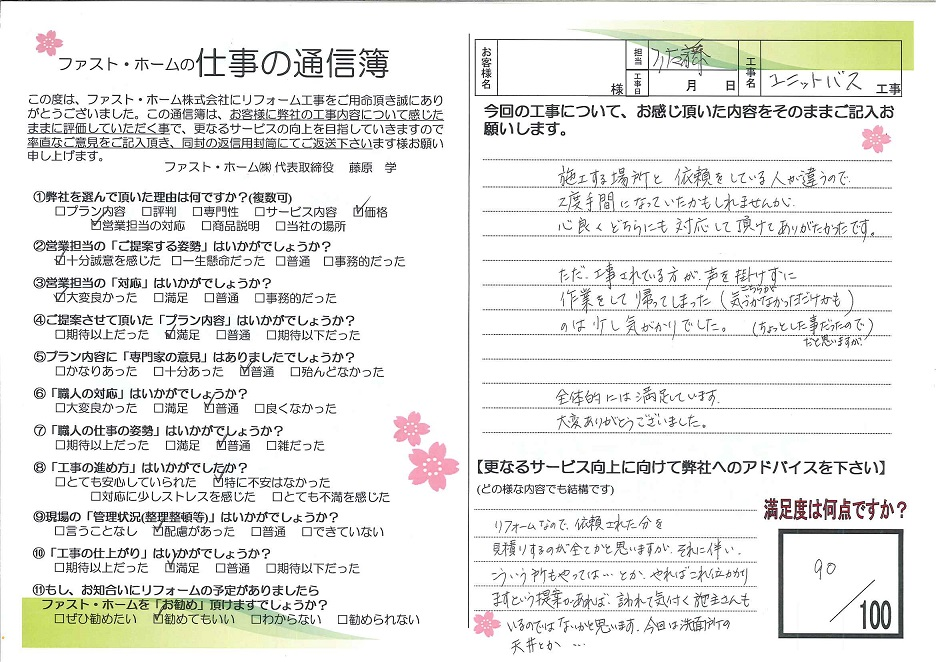 ファスト・ホームの仕事の通信簿
この度は、ファスト・ホーム株式会社にリフォーム工事をご用命頂き誠にあり
がとうございました。この通信簿は、お客様に弊社の工事内容について感じた
ままに評価していただく事で、更なるサービスの向上を目指していきますので
率直なご意見をご記入頂き、同封の返信用封筒にてご返送下さいます様お願い
申し上げます。
ファスト・ホーム㈱ 代表取締役 藤原 学
①弊社を選んで頂いた理由は何ですか？(複数可)
□プラン内容 □評判 □専門性 □サービス内容 ☑価格
☑営業担当の対応 □商品説明 □当社の場所
②営業担当の「ご提案する姿勢」はいかがでしょうか？
☑十分誠意を感じた □一生懸命だった □普通 □事務的だった
③営業担当の「対応」はいかがでしょうか？
☑大変良かった □満足 □普通 □事務的だった
④ご提案させて頂いた「プラン内容」はいかがでしょうか？
□期待以上だった ☑満足 □普通 □期待以下だった
⑤プラン内容に「専門家の意見」はありましたでしょうか？
□かなりあった □十分あった ☑普通 □殆んどなかった
⑥「職人の対応」はいかがでしょうか？
□大変良かった □満足 ☑普通 □良くなかった
⑦「職人の仕事の姿勢」はいかがでしょうか？
□期待以上だった □満足 ☑普通 □雑だった
⑧「工事の進め方」はいかがでしたか？
□とても安心していられた ☑特に不安はなかった
□対応に少しストレスを感じた □とても不満を感じた
⑨現場の「管理状況(整理整頓等)」はいかがでしょうか？
□言うことなし ☑配慮があった □普通 □できていない
⑩「工事の仕上がり」はいかがでしょうか？
□期待以上だった ☑満足 □普通 □期待以下だった
⑪もし、お知合いにリフォームの予定がありましたら
ファスト・ホームを「お勧め」頂けますでしょうか？
□ぜひ勧めたい ☑勧めてもいい □わからない □勧められない
お客様名 様 担当 佐藤 工事日 月 日 工事名 ユニットバス 工事
今回の工事について、お感じ頂いた内容をそのままご記入お
願いします。
施工する場所と 依頼をしている人が違うので、
2度手間になっていたかもしれませんが、
心良くどちらにも対応して頂けてありがたかったです。
ただ、工事されている方が、声を掛けずに
作業をして帰ってしまった(こちらが気づかなかっただけかも)
のは少し気がかりでした。(ちょっとした事だったので
だと思いますが。)
全体的には満足しています。
大変ありがとうございました。
【更なるサービス向上に向けて弊社へのアドバイスを下さい】
(どの様な内容でも結構です)
満足度は何点ですか？
90/100
リフォームなので、依頼された分を
見積りするのが全てかと思いますが、それに伴い、
こういう所もやっては…とか、やればこれ位かかり
ますという提案があれば、言われて気付く施主さんも
いるのではないかと思います。今回は洗面所の
天井とか…